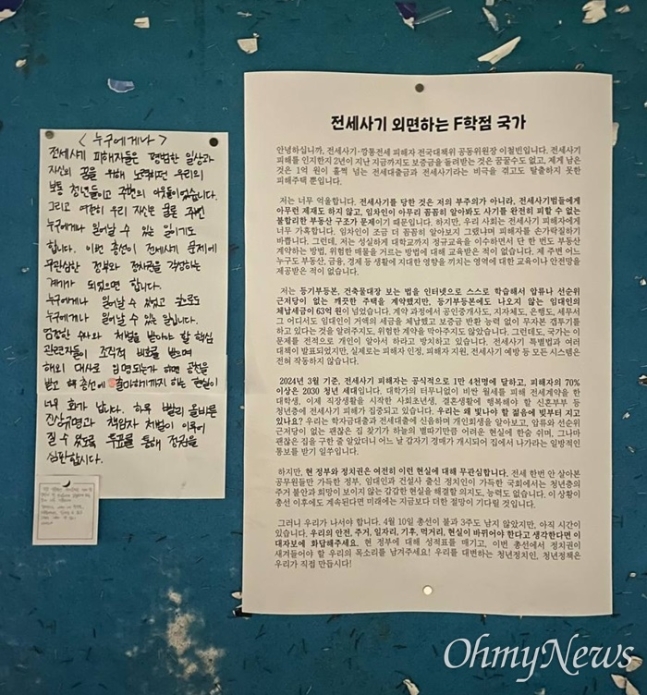 < 누구에게나 >
전세사기 피해자들은 평범한 일상과
자신의 꿈을 위해 노력하던 우리의
보통 청년들이고 주변의 이웃들이었습니다.
그리고 여전히 우리 자신은 물론 주변
누구에게나 일어날 수 있는 일이기도
합니다. 이번 총선이 전세사기 문제에
무관심한 정부와 정치권을 각성하는
계기가 되었으면 합니다.
누구에게나 일어날 수 있었고 앞으로도
누구에게나 일어날 수 있는 일입니다.
엄정한 수사와 처벌을 받아야 할 핵심
관련자들이 조직적 비호를 받으며
해외 대사로 임명되는가 하면 공천을
받고 핵 총선에 출마하기까지 하는 현실이
너무 화가 납니다. 하루 빨리 올바른
진상규명과 책임자 처벌이 이루어
질 수 있도록 투표를 통해 정권을
심판합시다.
전세사기 외면하는 F학점 국가
안녕하십니까, 전세사기·깡통전세 피해자 전국대책위 공동위원장 이철빈입니다. 전세사기
피해를 인지한지 2년이 지난 지금까지도 보증금을 돌려받는 것은 꿈꿀수도 없고, 제게 남은
것은 1억 원이 훌쩍 넘는 전세대출금과 전세사기라는 비극을 겪고도 탈출하지 못한
피해주택 뿐입니다.
저는 너무 억울합니다. 전세사기를 당한 것은 저의 부주의가 아니라, 전세사기범들에게
아무런 제재도 하지 않고, 임차인이 아무리 꼼꼼히 알아봐도 사기를 완전히 피할 수 없는
불합리한 부동산 구조가 문제이기 때문입니다. 하지만, 우리 사회는 전세사기 피해자에게
너무 가혹합니다. 임차인이 조금 더 꼼꼼히 알아보지 그랬냐며 피해자를 손가락질하기
바쁩니다. 그런데, 저는 성실하게 대학교까지 정규교육을 이수하면서 단 한 번도 부동산
계약하는 방법, 위험한 매물을 거르는 방법에 대해 교육받은 적이 없습니다. 제 주변 어느
누구도 부동산, 금융, 경제 등 생활에 지대한 영향을 끼치는 영역에 대한 교육이나 안전망을
제공받은 적이 없습니다.
저는 등기부등본, 건축물대장 보는 법을 인터넷으로 스스로 학습해서 압류나 선순위
근저당이 없는 깨끗한 주택을 계약했지만, 등기부등본에도 나오지 않는 임대인의
체납세금이 63억 원이 넘었습니다. 계약 과정에서 공인중개사도, 지자체도, 은행도, 세무서도
그 어디서도 임대인이 거액의 세금을 체납했고 보증금 반환 능력 없이 무자본 갭투기를
하고 있다는 것을 알려주지도, 위험한 계약을 막아주지도 않았습니다. 그런데도, 국가는 이
문제를 전적으로 개인이 알아서 하라고 방치하고 있습니다. 전세사기 특별법과 여러
대책이 발표되었지만, 실제로는 피해자 인정, 피해자 지원, 전세사기 예방 등 모든 시스템은
전혀 작동하지 않습니다.
2024년 3월 기준, 전세사기 피해자는 공식적으로 1만 4천명에 달하고, 피해자의 70%
이상은 2030 청년 세대입니다. 대학가의 터무니없이 비싼 월세를 피해 전세계약을 한
대학생, 이제 직장생활을 시작한 사회초년생, 결혼생활에 행복해야 할 신혼부부 등
청년층에 전세사기 피해가 집중되고 있습니다. 우리는 왜 빛나야 할 젊음에 빚부터 지고
있나요? 우리는 학자금대출과 전세대출에 신음하며 개인회생을 알아보고, 압류와 선순위
근저당이 없는 괜찮은 집 찾기가 하늘의 별따기만큼 어려운 현실에 한숨 쉬며, 그나마
괜찮은 집을 구한 줄 알았더니 어느 날 갑자기 경매가 개시되어 집에서 나가라는 일방적인
통보를 받기 일쑤입니다.
하지만, 현 정부와 정치권은 여전히 이런 현실에 대해 무관심합니다. 전세 한번 안 살아본
공무원들만 가득한 정부, 임대인과 건설사 출신 정치인이 가득한 국회에서는 청년층의
주거 불안과 희망이 보이지 않는 갑갑한 현실을 해결할 의지도, 능력도 없습니다. 이 상황이
총선 이후에도 계속된다면 미래에는 지금보다 더한 절망이 기다릴 것입니다.
그러니 우리가 나서야 합니다. 4월 10일 총선이 불과 3주도 남지 않았지만, 아직 시간이
있습니다. 우리의 안전, 주거, 일자리, 기후, 먹거리, 현실이 바뀌어야 한다고 생각한다면 이
대자보에 화답해주세요. 현 정부에 대해 성적표를 매기고, 이번 총선에서 정치권이
새겨들어야 할 우리의 목소리를 남겨주세요! 우리를 대변하는 청년정치인, 청년정책은
우리가 직접 만듭시다!
OhmyNews